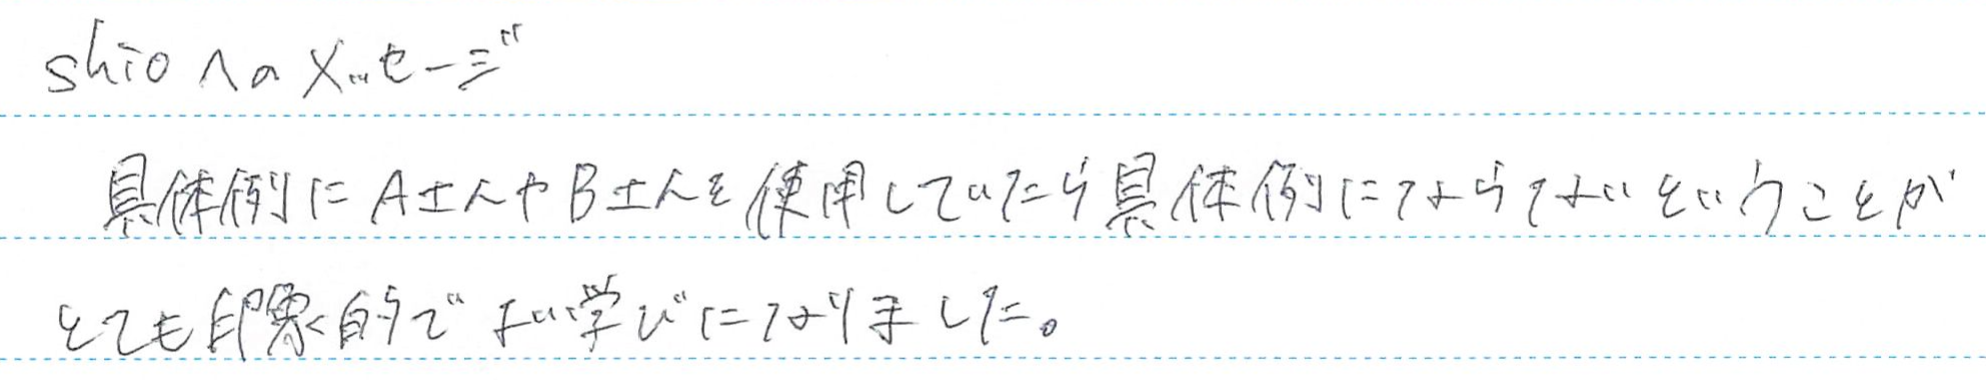 shioへのメッセージ
具体例にA土人やB土人を使用していたら具体例にならないということが
とても印象的でよい学びになりました。